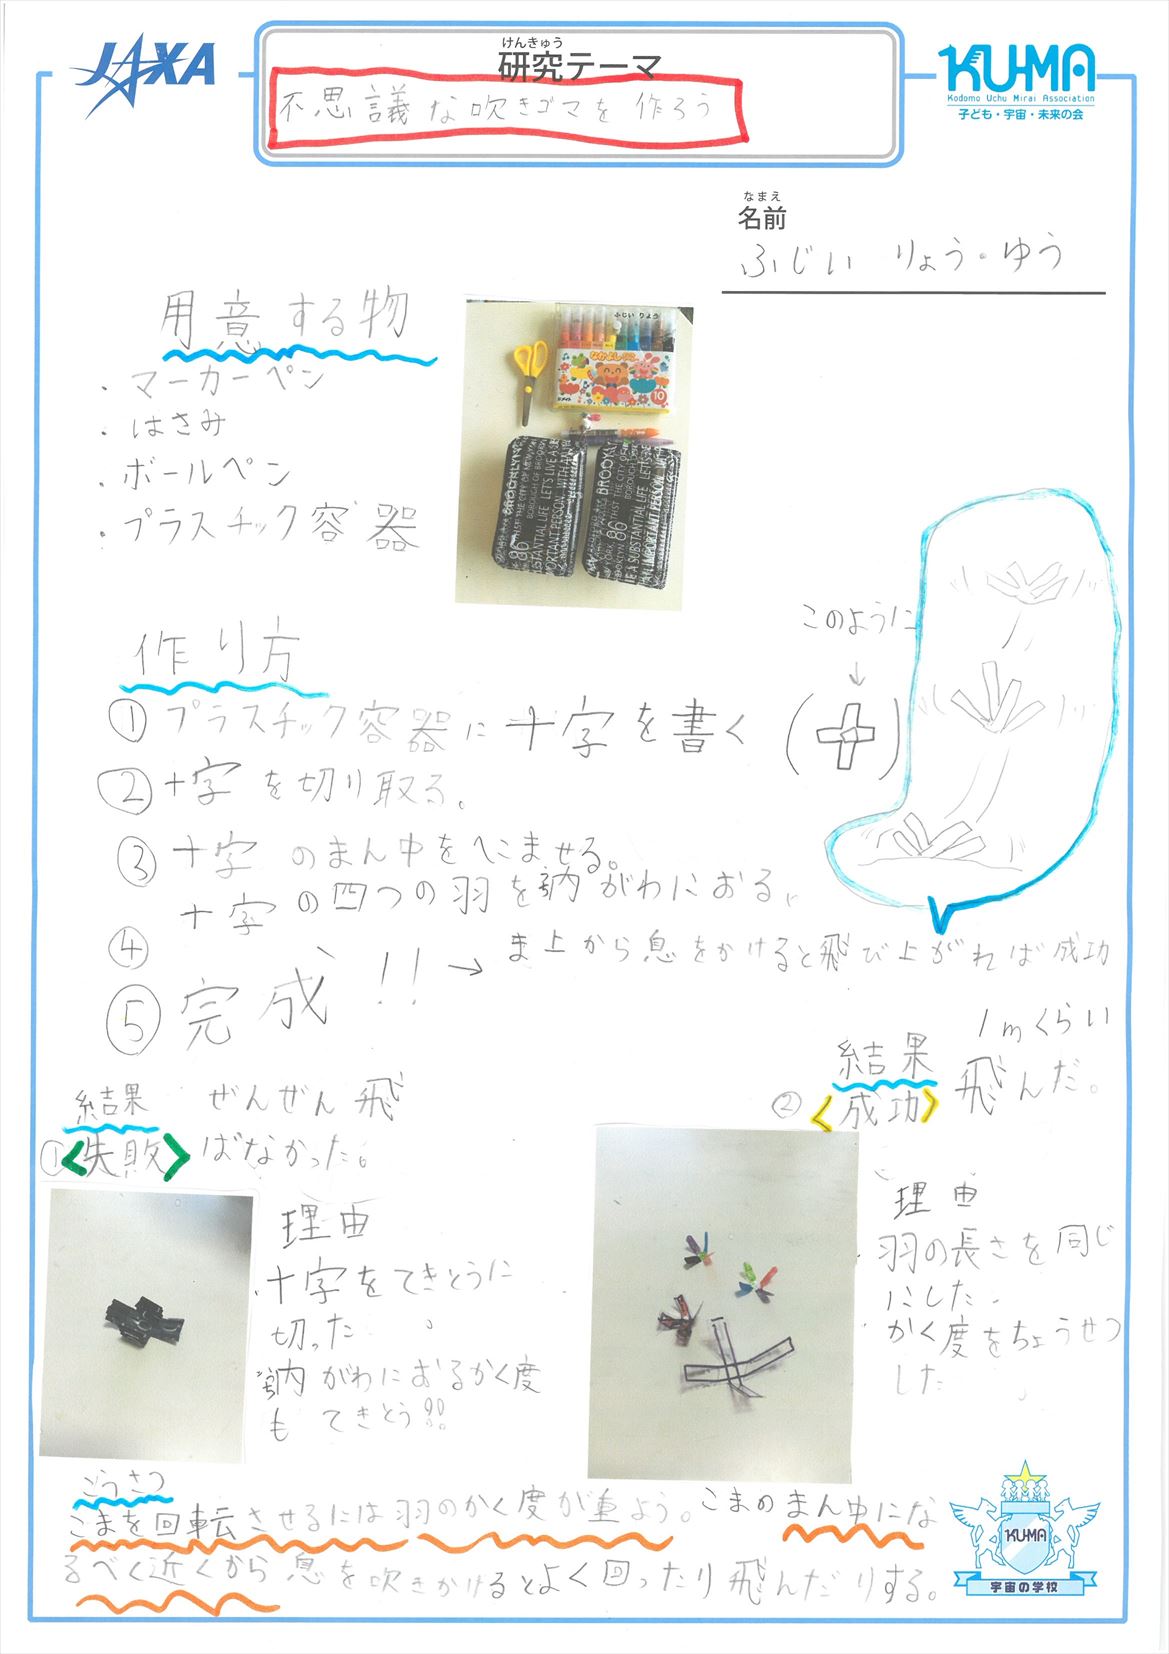 JAXA
けんきゅう
研究テーマ
不思議な吹きゴマを作ろう
KU-MA
Kodomo Uchu Mirai Association
子ども・宇宙・未来の会
なまえ
名前
ふじい りょう・ゆう
用意する物
・マーカーペン
・はさみ
・ボールペン
・プラスチック容器
ふじい りょう
なかよし
10
BROOKLYN
86
BROOKLYN
86
作り方
このように
↓
①プラスチック容器に十字を書く
②十字を切り取る。
③十字のまん中をへこませる。
十字の四つの羽を内がわにおる。
④
⑤完成!!→ま上から息をかけると飛び上がれば成功
結果 ぜんぜん飛
①<失敗>ばなかった。
理由
・十字をてきとうに
切った。
・内がわにおるかく度
もてきとう!!
結果 1mくらい
②<成功>飛んだ。
理由
・羽の長さを同じ
にした。
・かく度をちょうせつ
した。
こうさつ
こまを回転させるには羽のかく度が重よう。こまのまん中にな
るべく近くから息を吹きかけるとよく回ったり飛んだりする。
KU-MA
宇宙の学校